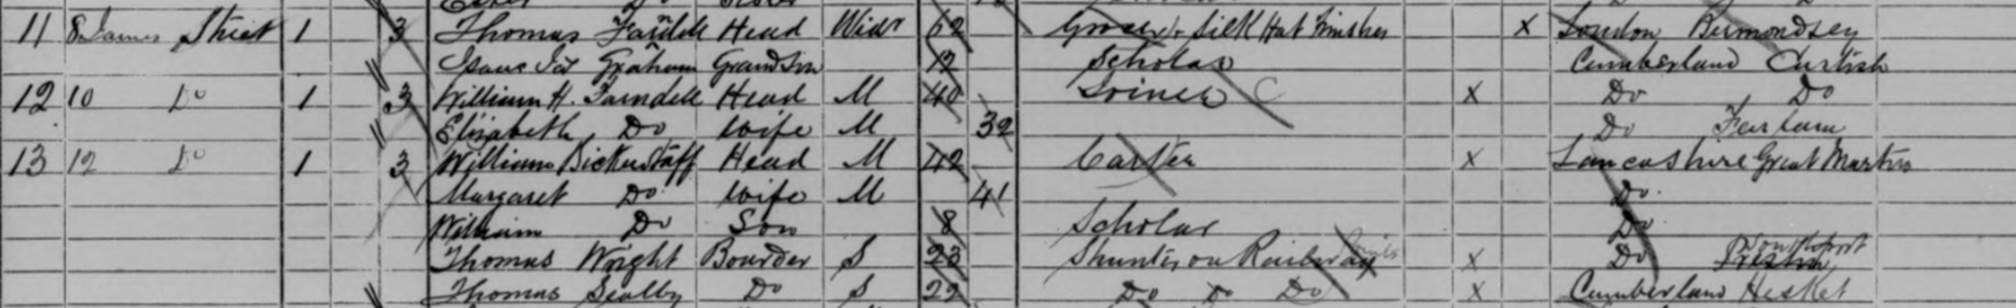 11 8 James Street 1 3 Thomas Farndell Head Widr 62 Grocer & Silk Hat Finisher X London Bermondsey
Isaac Graham Grandson 12 Scholar Cumberland Carlisle
12 10 Do 1 3 William H. Farndell Head M 40 C X Do Do
Elizabeth Do Wife M 32 Do
13 12 Do 1 3 William Bickerstaff Head M 42 Carter X Lancashire Great Marton
Margaret Do Wife M 41 Do
William Do Son 8 Scholar Do
Thomas Wright Bourder S 23 Shunter on Railway X Do Southport
Thomas Scalby Do S 22 Do Do Do X Cumberland Hesket